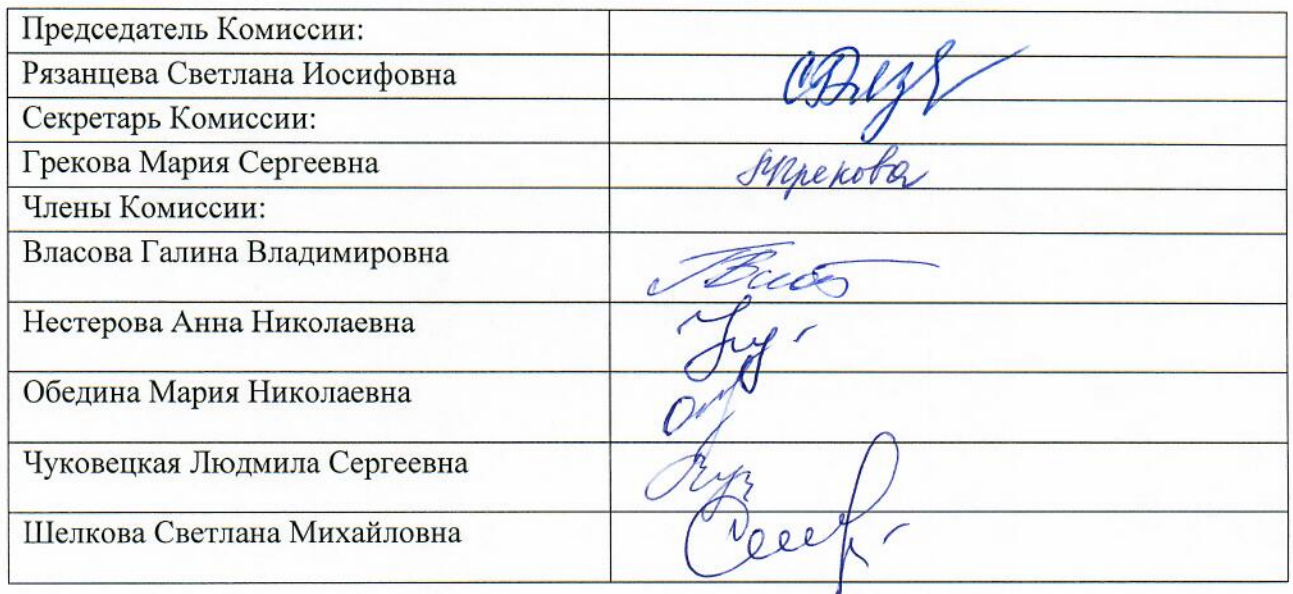 Председатель Комиссии:
Рязанцева Светлана Иосифовна
Секретарь Комиссии:
Грекова Мария Сергеевна
Члены Комиссии:
Власова Галина Владимировна
Нестерова Анна Николаевна
Обедина Мария Николаевна
Чуковецкая Людмила Сергеевна
Шелкова Светлана Михайловна